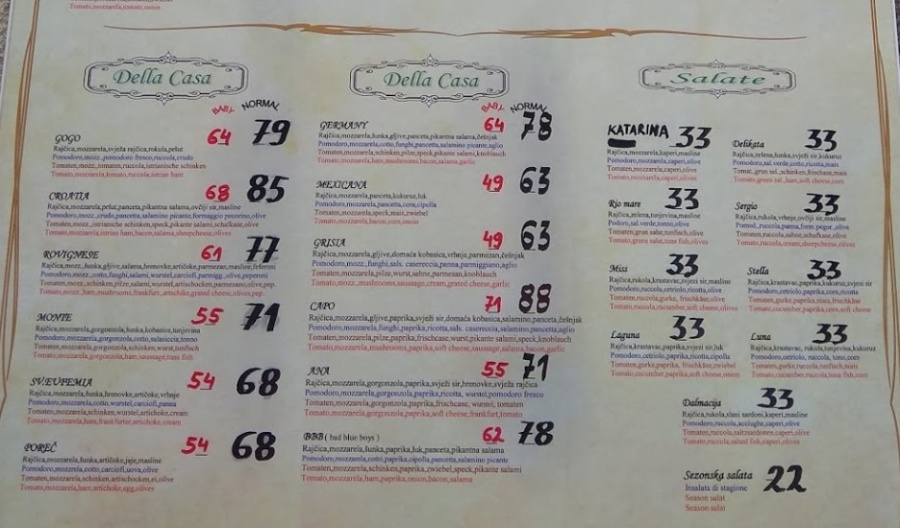 Tomato,mozzarela,tomato,onion
Della Casa
BABY NORMAL
GOGO 64 79
Rajčica,mozzarela,svježa rajčica,rokula,pršut
Pomodoro,mozz.,pomodoro fresco,ruccola,crudo
Tomaten,mozz.,tomaten,ruccola,istrianische schinken
Tomato,mozzarela,tomato,ruccola,istrian ham
CROATIA 68 85
Rajčica,mozzarela,pršut,panceta,pikantna salama,ovčji sir,masline
Pomodoro,mozz.,crudo,pancetta,salamino picante,formaggio pecorino,olive
Tomaten,mozzarela,istrian ham,bacon,salama,sheepcheese,olives
ROVIGNESE 61 77
Rajčica,mozz.,šunka,gljive,salama,hrenovke,artičoke,parmezan,masline,feferoni
Pomodoro,mozz.,cotto,funghi,salami,wurstel,carciofi,parmigg.,olive,peperoni
Tomaten,mozz.,schinken,pilze,salami,wurstel,artischocken,parmesano,olive,pep.
Tomato,mozz.,ham,mushrooms,frankfurt.,artichoke,grated cheese,olives,pep.
MONTE 55 71
Rajčica,mozzarela,gorgonzola,šunka,kobasica,tunjevina
Pomodoro,mozzarela,gorgonzola,cotto,salsiccia,tonno
Tomaten,mozzarela,gorgonzola,schinken,wurst,tunfisch
Tomato,mozzarela,gorgonzola,ham,sausage,tuna fish
SV.EUFEMIA 54 68
Rajčica,mozzarela,šunka,hrenovke,artičoke,vrhnje
Pomodoro,mozzarela,cotto,wurstel,carciofi,panna
Tomaten,mozzarela,schinken,wurstel,artischocke,cream
Tomato,mozzarela,ham,frankfurter,artichoke,cream
POREČ 54 68
Rajčica,mozzarela,šunka,artičoke,jaje,masline
Pomodoro,mozzarela,cotto,carciofi,uova,olive
Tomaten,mozzarela,schinken,artischocken,ei,olive
Tomato,mozzarela,ham,artichoke,egg,olives
Della Casa
BABY NORMAL
GERMANY 64 78
Rajčica,mozzarela,šunka,gljive,panceta,pikantna salama,češnjak
Pomodoro,mozzarela,cotto,funghi,pancetta,salamino picante,aglio
Tomaten,mozzarela,schinken,pilze,speck,pikante salami,knoblauch
Tomato,mozzarela,ham,mushrooms,bacon,salama,garlic
MEXICANA 49 63
Rajčica,mozzarela,panceta,kukuruz,luk
Pomodoro,mozzarela,pancetta,corn,cipolla
Tomaten,mozzarela,speck,mais,zwiebel
Tomato,mozzarela,bacon,corn,onion
GRISIA 49 63
Rajčica,mozzarela,gljive,domaća kobasica,vrhnje,parmezan,češnjak
Pomodoro,mozz.,funghi,sals. casereccia,panna,parmiggiano,aglio
Tomaten,mozzarela,pilze,wurst,sahne,parmesan,knoblauch
Tomato,mozz.,mushrooms,sausage,cream,grated cheese,garlic
CAPO 71 88
Rajčica,mozzarela,gljive,paprika,svježi sir,domaća kobasica,salamino,panceta,češnjak
Pomodoro,mozzarela,funghi,paprika,ricotta,sals. casereccia,salamino,pancetta,aglio
Tomaten,mozzarela,pilze,paprika,frischcase,wurst,pikante salami,speck,knoblauch
Tomato,mozzarela,mushrooms,paprika,soft cheese,sausage,salama,bacon,garlic
ANA 55 71
Rajčica,mozzarela,gorgonzola,paprika,svježi sir,hrenovke,svježa rajčica
Pomodoro,mozzarela,gorgonzola,paprika,ricotta,wurstel,pomodoro fresco
Tomaten,mozzarela,gorgonzola,paprika,frischcase, wurstel, tomaten
Tomato,mozzarela,gorgonzola,paprika,soft cheese,frankfurt,tomato
BBB ( bad blue boys ) 62 78
Rajčica,mozzarela,šunka,paprika,luk,panceta,pikantna salama
Pomodoro,mozzarela,cotto,paprika,cipolla,pancetta,salamino picante
Tomaten,mozzarela,schinken,paprika,zwiebel,speck,pikante salami
Tomato,mozzarela,ham,paprika,onion,bacon,salama
Salate
KATARINA 33
Rajčica,mozzarela,kaperi,masline
Pomodoro,mozzarela,caperi,olive
Tomaten,mozzarela,caperi,olive
Tomato,mozzarela,caperi,olives
Rio mare 33
Rajčica,zelena,tunjevina,masline
Pomodoro,sal.verde,tonno,olive
Tomaten,grun salat,tunfisch,olive
Tomato,green salat,tuna fish,olives
Miss 33
Rajčica,rukola,krastavac,svježi sir,masline
Pomodoro,ruccola,cetriolo,ricotta,olive
Tomaten,ruccola,gurke, frischkäse,olive
Laguna 33
Rajčica,krastavac,paprika,svježi sir,luk
Pomodoro,cetriolo,paprika,ricotta,cipolla
Tomaten,gurke,paprika, frischkäse,zwiebel
Tomato,cucumber,paprika,soft cheese,onion
Delikata 33
Rajčica,zelena,šunka,svježi sir,kukuruz
Pomodoro,sal.verde,cotto,ricotta,mais
Tomato,green sal.,ham,soft cheese,corn
Sergio 33
Rajčica,rukola,vrhnje,ovčji sir,masline
Pomod.,ruccola,panna,form.pegor.,olive
Tomaten,ruccola,sahne,schafkase,olive
Tomato,ruccola,cream,sheepcheese,olives
Stella 33
Rajčica,krastavac,paprika,kukuruz,svježi sir
Pomodoro,cetriolo,paprika,corn,ricotta
Tomaten,gurke,paprika,mais,frischkäse
Tomato,cucumber,paprika,corn,soft cheese
Luna 33
Rajčica,krastavac, rukola,tunjevina,kukuruz
Pomodoro,cetriolo, ruccola, tuna,corn
Tomato,cucumber,ruccola,tuna fish,corn
Dalmacija 33
Rajčica,rukola,slani sardoni,kaperi,masline
Pomodoro,ruccola,acciughe,caperi,olive
Tomaten,ruccola,salzsardionen,caperi,olive
Tomato,ruccola,salted fish,caperi,olives
Sezonska salata 22
Insalata di stagione
Season salat
Season salat